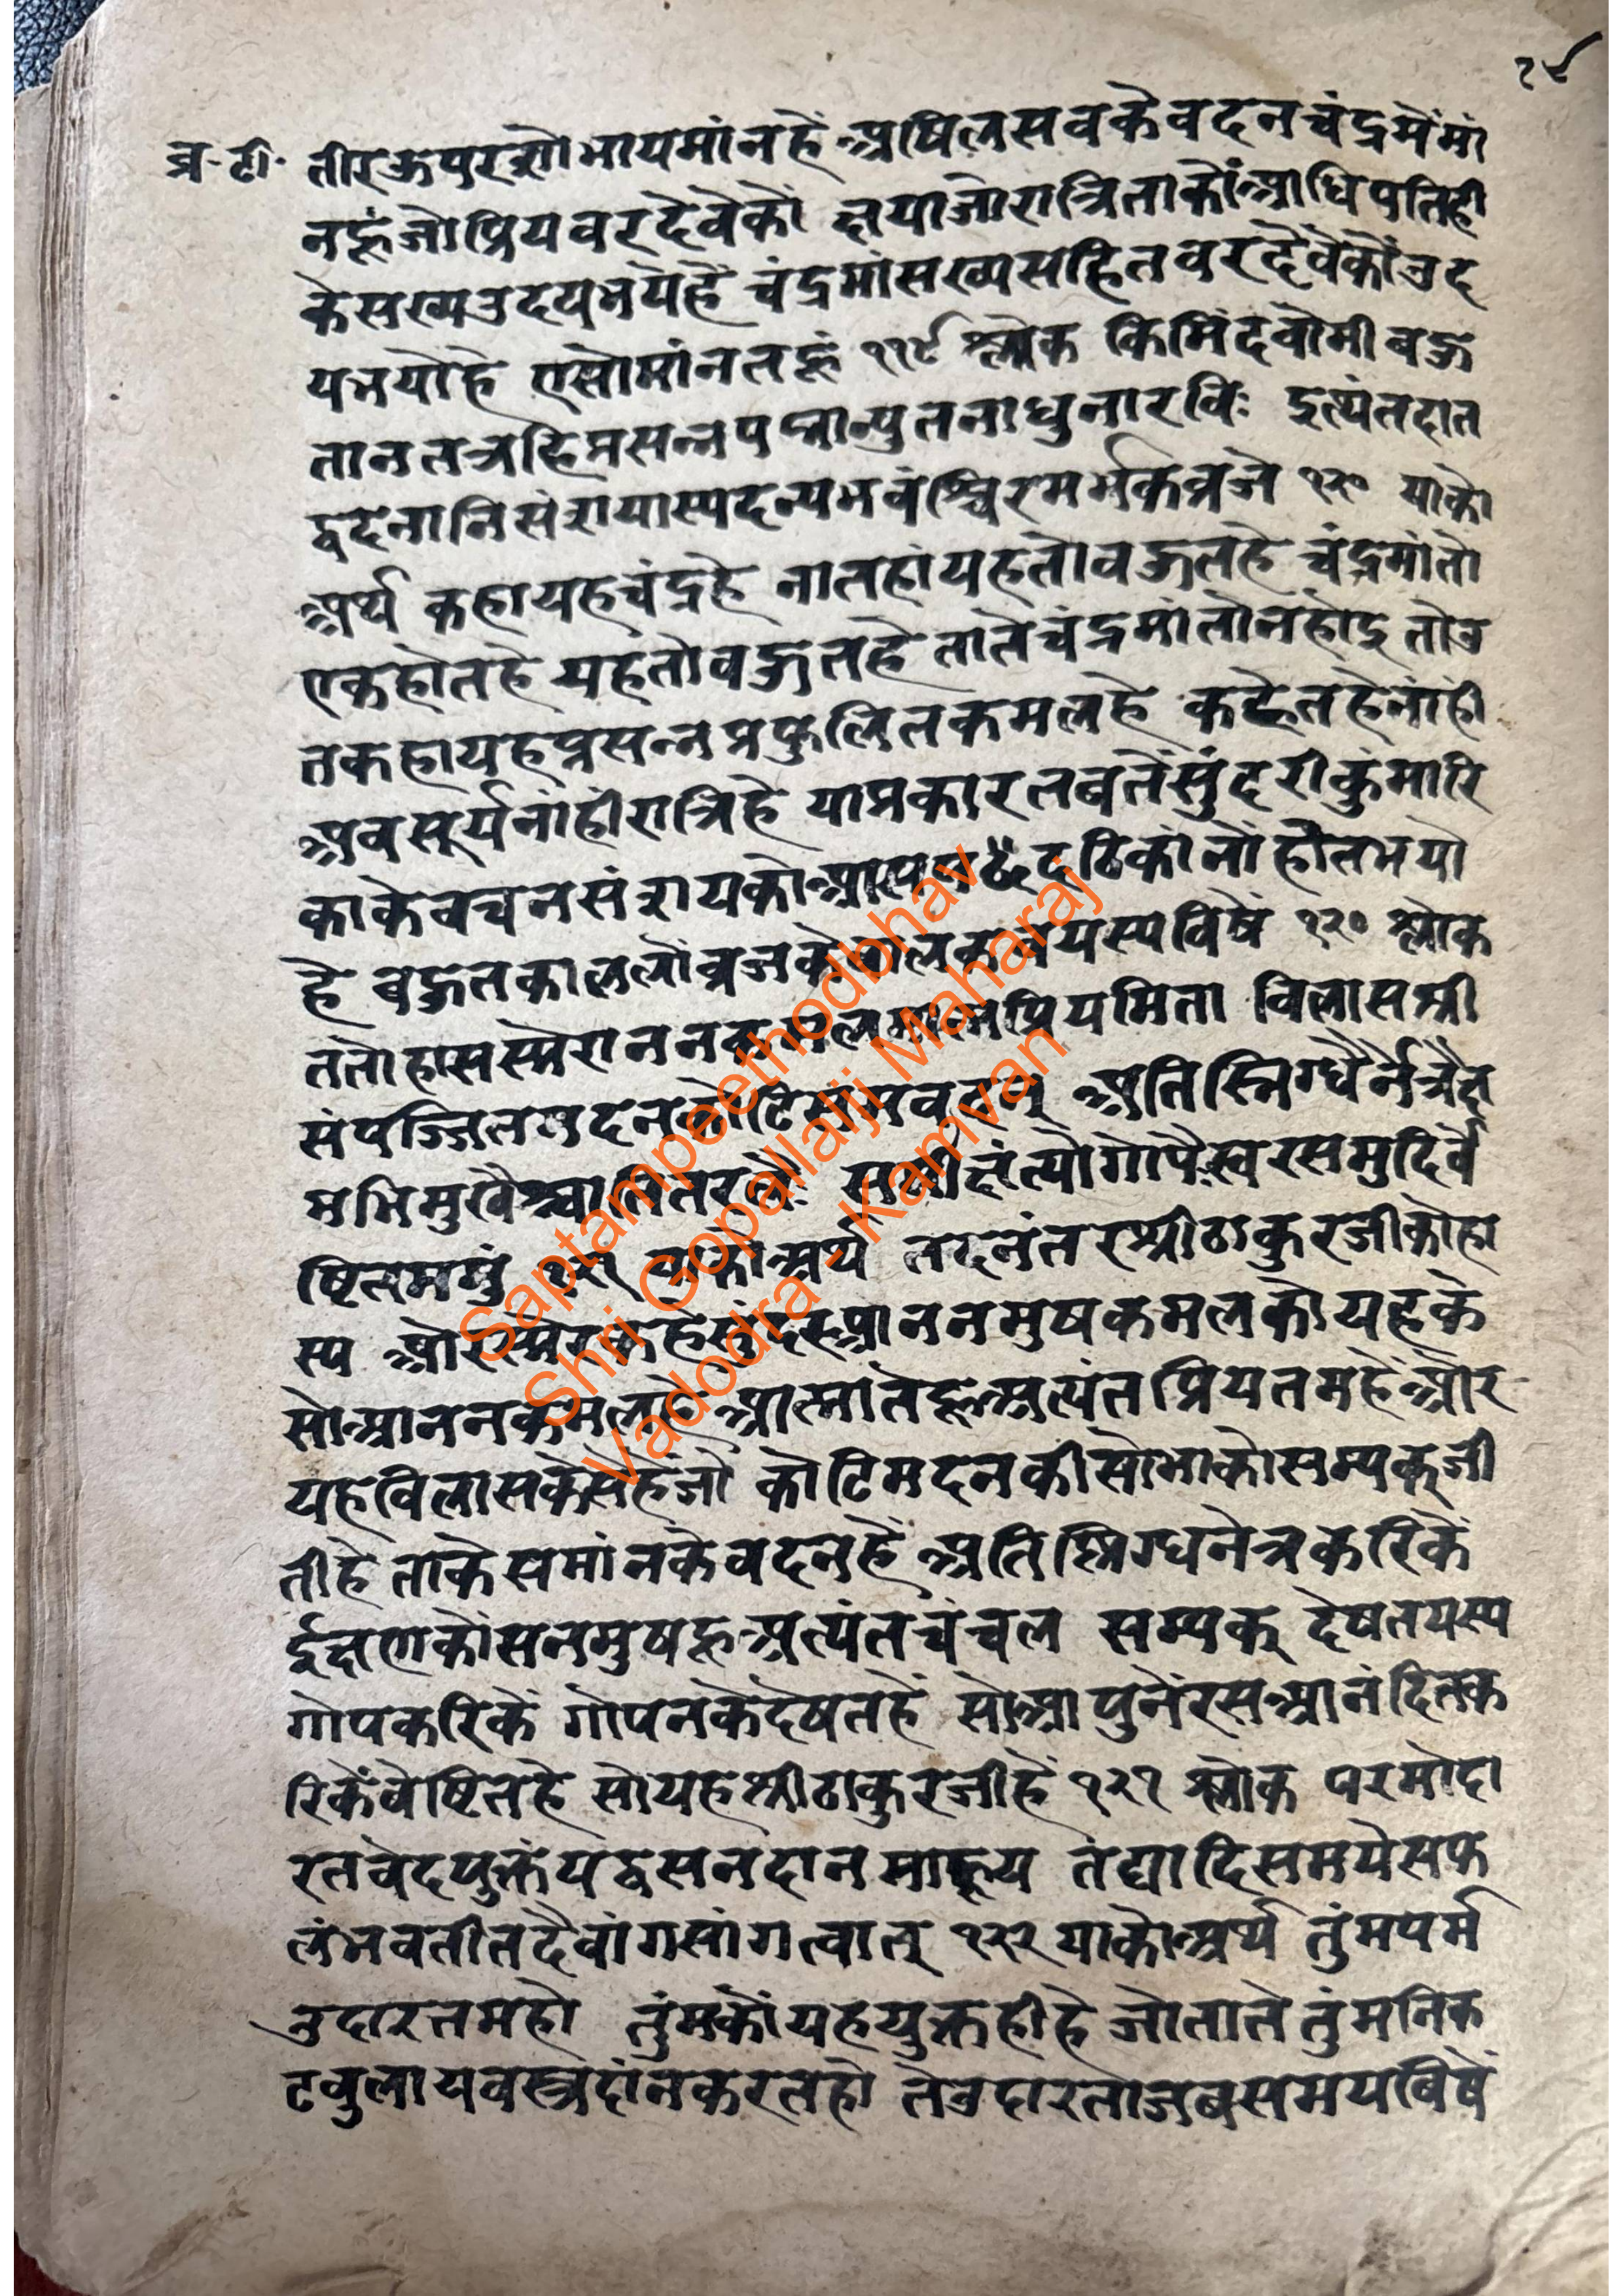 २८
व्र॰टी॰ तीरऊपरसोभायमांनहें अषिलसवकेवदनचंद्रमेंमां
नहूंजोप्रियवरदेवेकों क्षयाजोरात्रिताकोंआधिपतिही
केसख्यउदयभयेहें चंद्रमांसख्यसहितवरदेवेकोंउद
यभयोहे एसोमांनतहूं ११९ श्लोक किमिंदवोमीबहु
तानतत्रहिप्रसन्नपद्मान्युतनाधुनारविः इत्यंतदात
द्वदनानिसंशयास्पदन्यभवंश्चिरमर्भकव्रजे १२० याको
अर्थ कहायहचंद्रहे नातहांयहतोबहुतहे चंद्रमांतो
एकहोतहे यहतोबहुतहे तातेंचंद्रमांतोनहोइ तोउ
तकहायहप्रसन्नप्रफुलितकमलहे कहेतहेनांही
अवसूर्यनांहीरात्रिहे याप्रकारतबतेंसुंदरीकुंमारि
काकेवचनसंशयको ठिकांनों होतभयो
हे बहुतकाललोंव्रजके विषें १२० श्लोक
ततोहासस्मेराननकमल प्रियमिता विलासश्री
संपज्जितमदनकोटिसमवदनम् अतिस्निग्धैर्नेत्रैस्त
मभिमुखै सरसमुदिवै
ष्टितममुं १२१ याकोअर्थ तदनंतरश्रीठाकुरजीकोहा
स्य ओरस्मेर आननमुषकमलकोयहके
सोआननकमलहे आत्मातेंहूअत्यंतप्रियतमहेंओर
यहविलासकेसेहेंजो कोटिमदनकीसोभाकोसम्यक्जी
तीहे ताकेसमांनकेवदनहें अतिस्निग्धनेत्रकरिकें
ईक्षणकोंसनमुषहूअत्यंतचंचल सम्यक् देषतयस्य
गोपकरिकें गोपनकेदेषतहें सोआपुनेंरसआनंदितक
रिकेंवेष्टितहे सोयहश्रीठाकुरजीहें १२१ श्लोक परमोदा
रतवेदयुक्तंयद्वसनदानमाहूय तंद्यादिसमयेसफ
लंभवतीतदैवांगसांगत्वात् १२२ याकोअर्थ तुंमपर्म
उदारतमहो तुंमकोंयहयुक्तहीहे जोतातेतुंमनिक
टवुलायवस्त्रदांनकरतहो तेउदारताजबसमयबिषें
Saptampeethodbhav
Shri Gopallalji Maharaj
Vadodra - Kamvan